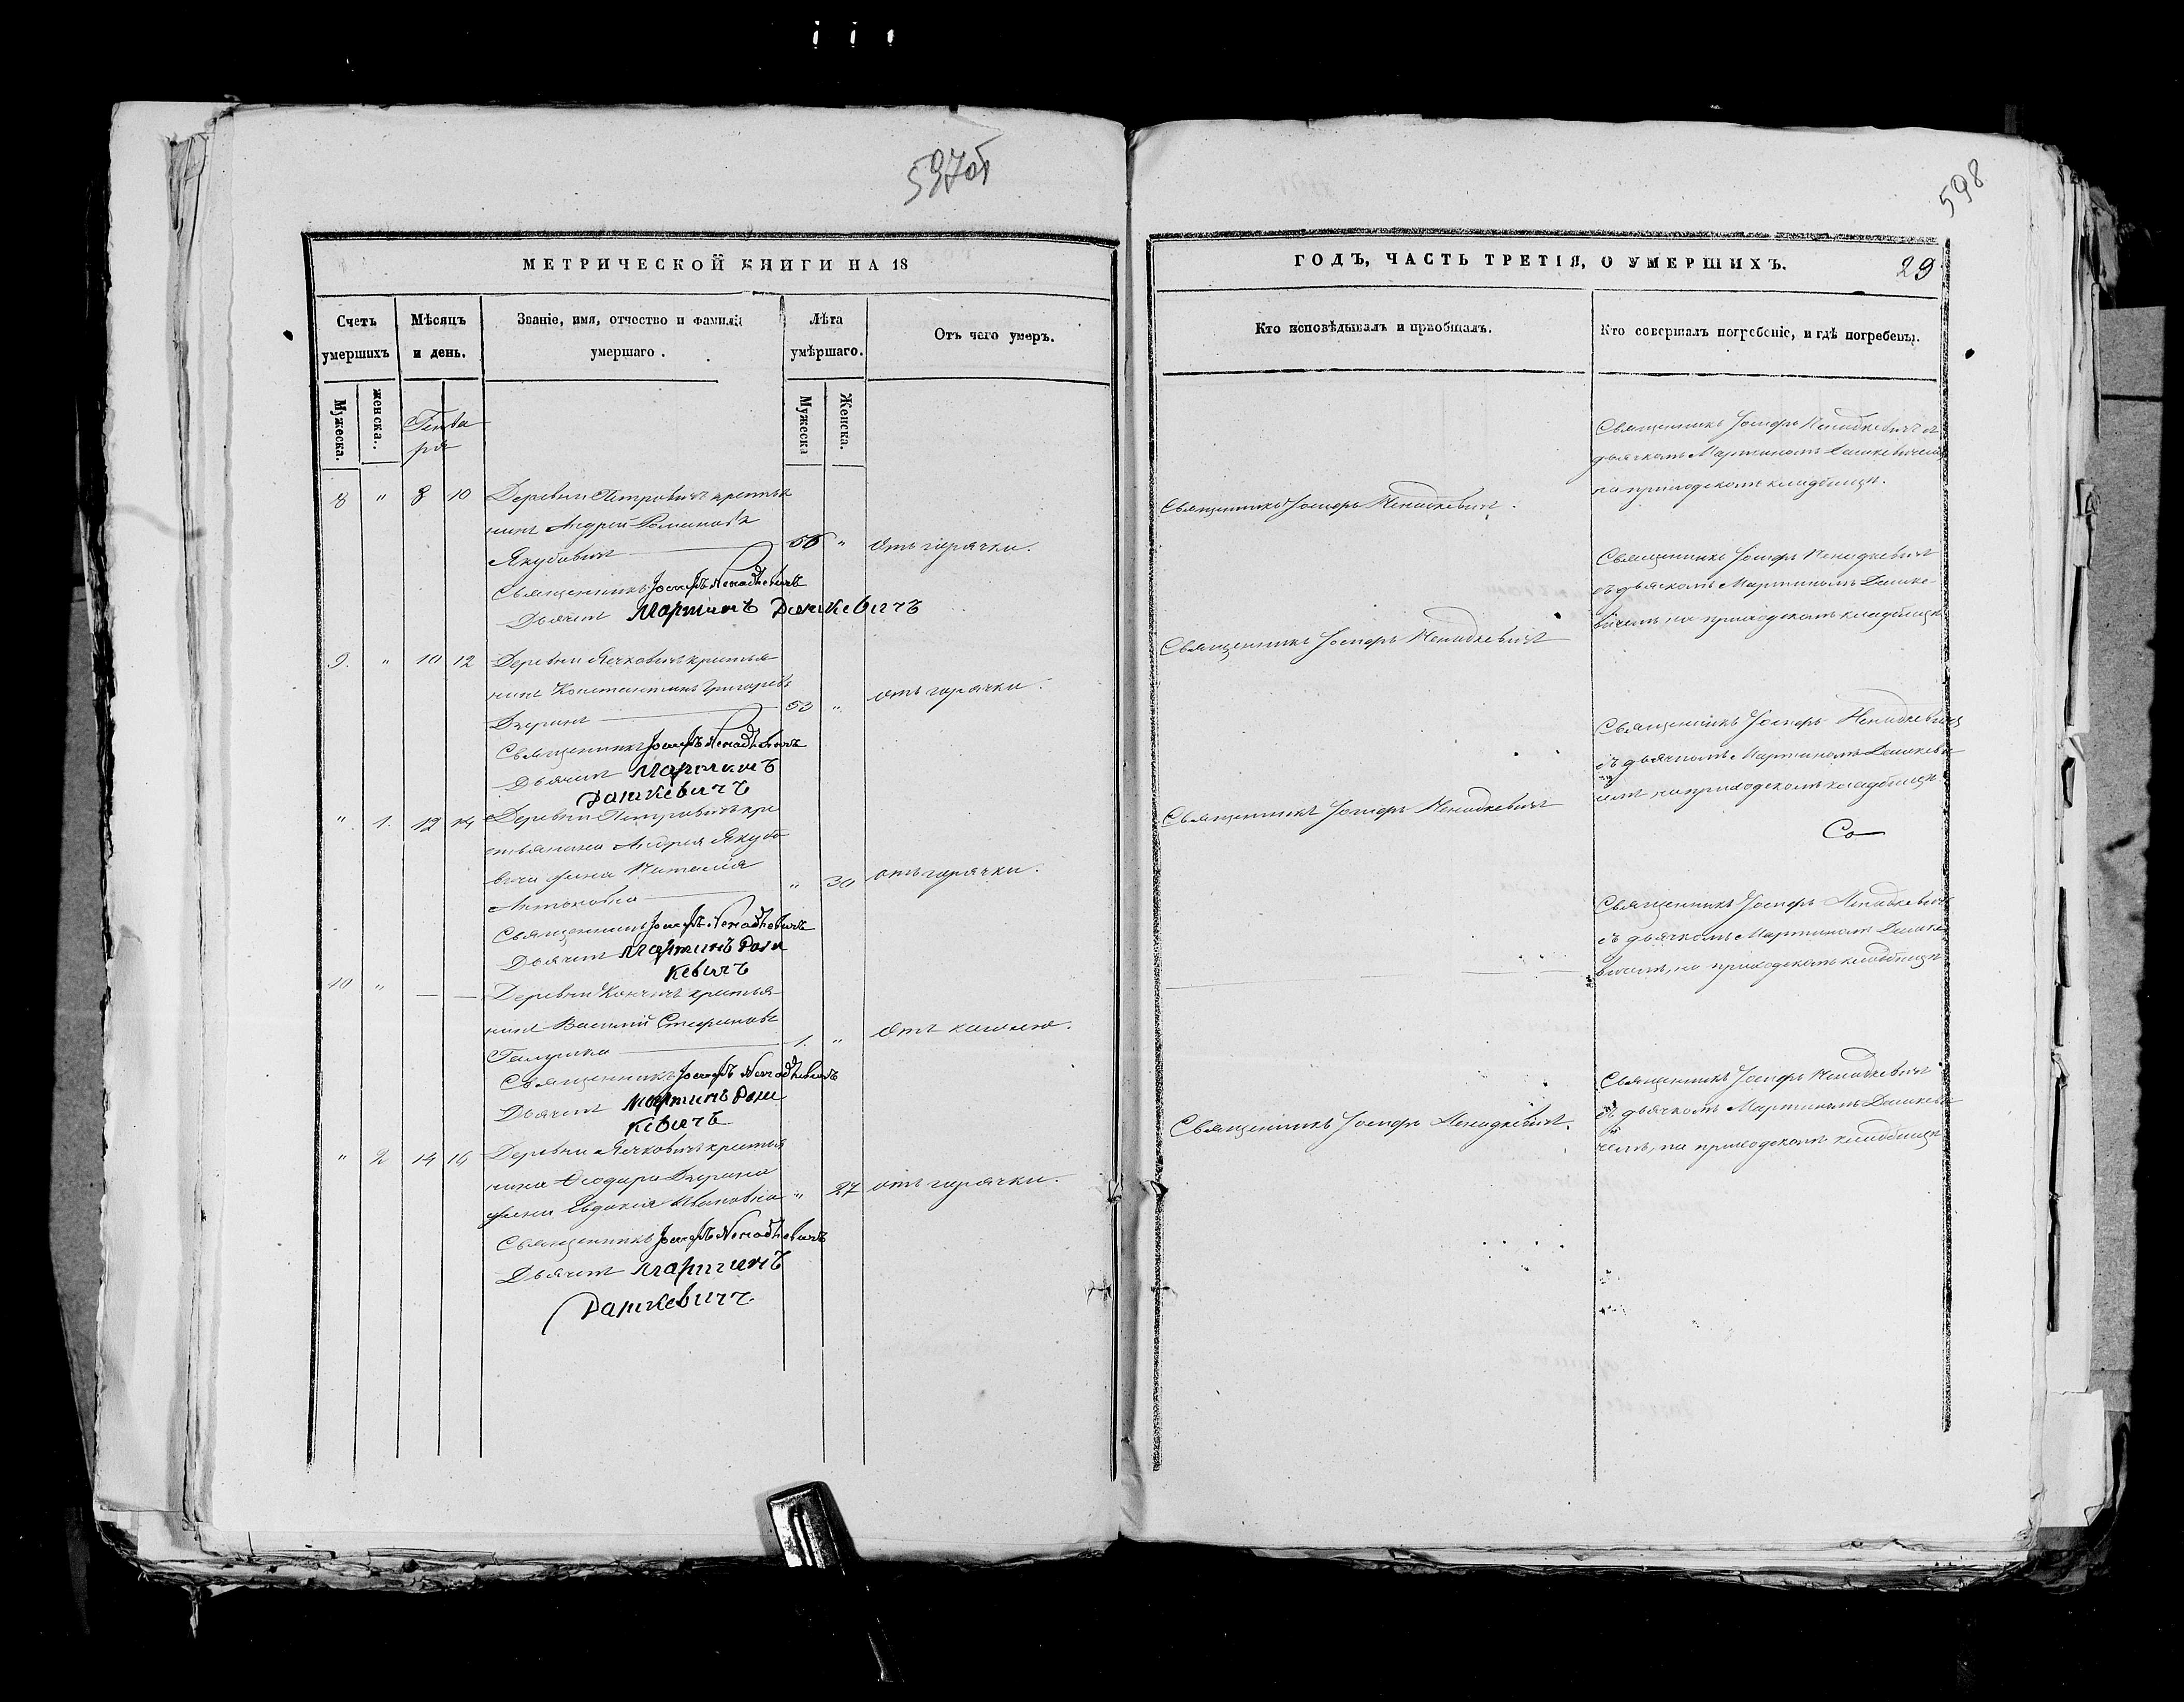 597об
МЕТРИЧЕСКОЙ КНИГИ НА 18
Счетъ умершихъ
Мужеска.
женска.
Мѣсяцъ и день.
Званіе, имя, отчество и фамилія умершаго.
Лѣта умѣршаго.
Мужеска
Женска.
Отъ чего умеръ.
Генва
ря
8 " 8 10 Деревни Петровичъ крестья
нинъ Андрей Романовъ
Якубовичъ 56 " Отъ горячки.
Священникъ Іосифъ Ненадкевичъ
Дьячекъ Мартинъ Дашкевичъ
9. " 10 12 Деревни Ячковичъ крестья
нинъ Константинъ Григорьевъ
53 " отъ горячки.
Священникъ Іосифъ Ненадкевичъ
Дьячекъ Мартинъ
Дашкевичъ
" 1. 12 14 Деревни Петровичъ кре
стьянина Андрея Якубо
вича жена Наталія
Антоновна " 30 отъ горячки.
Священникъ Іосифъ Ненадкевичъ
Дьячекъ Мартинъ Даш
кевичъ
10 " — — Деревни крестья
нинъ Василій Стефановъ
Галушка 1. " Отъ кашлю.
Священникъ Іосифъ Ненадкевичъ
Дьячекъ Мартинъ Даш
кевичъ
" 2 14 16 Деревни Ячковичъ крестья
нина Ѳеодора
жена Евдокія Ивановна " 27 отъ горячки.
Священникъ Іосифъ Ненадкевичъ
Дьячекъ Мартинъ
Дашкевичъ
598
ГОДЪ, ЧАСТЬ ТРЕТІЯ, О УМЕРШИХЪ.
29
Кто исповѣдывалъ и пріобщалъ.
Кто совершалъ погребеніе, и гдѣ погребены.
Священникъ Іосифъ Ненадкевичъ съ
дьячкомъ Мартиномъ Дашкевичемъ,
на приходскомъ кладбищѣ.
Священникъ Іосифъ Ненадкевичъ.
Священникъ Іосифъ Ненадкевичъ
съ дьячкомъ Мартиномъ Дашке-
вичемъ, на приходскомъ кладбищѣ
Священникъ Іосифъ Ненадкевичъ
Священникъ Іосифъ Ненадкевичъ
съ дьячкомъ Мартиномъ Дашкеви
чемъ, на приходскомъ кладбищѣ
Священникъ Іосифъ Ненадкевичъ
Со
Священникъ Іосифъ Ненадкевичъ
съ дьячкомъ Мартиномъ Дашке
вичемъ, на приходскомъ кладбищѣ
Священникъ Іосифъ Ненадкевичъ
съ дьячкомъ Мартиномъ Дашкеви
чемъ, на приходскомъ кладбищѣ
Священникъ Іосифъ Ненадкевичъ.